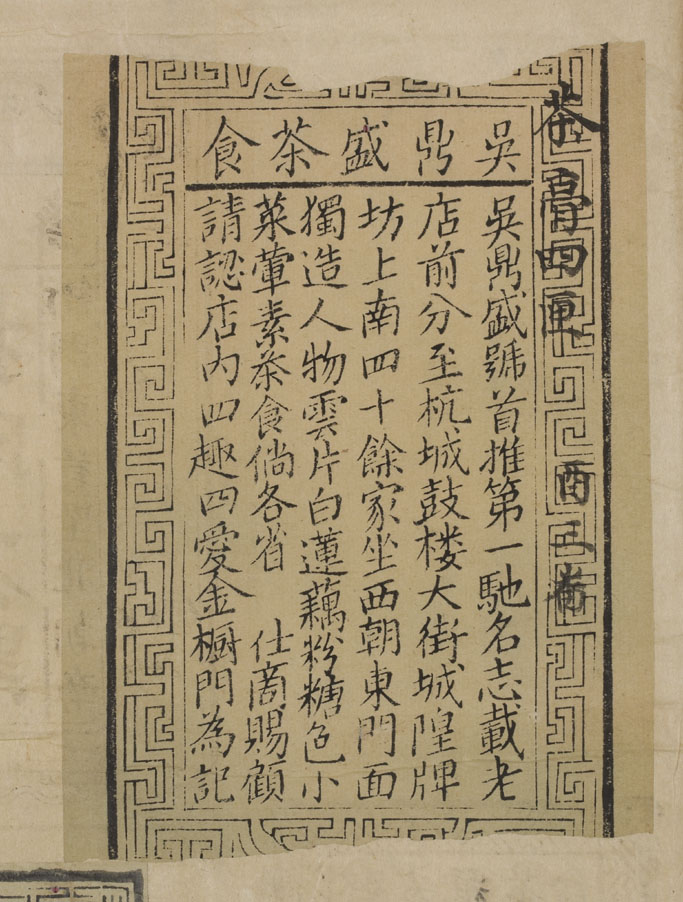 吳鼎盛茶食
茶膏四匣 酉
吳鼎盛號首推第一馳名志載老
店前分至杭城鼓楼大街城隍牌
坊上南四十餘家坐西朝東門面
獨造人物雲片白蓮藕粉糖色小
菓葷素茶食倘各省 仕商賜顧
請認店内四趣四愛金橱門為記